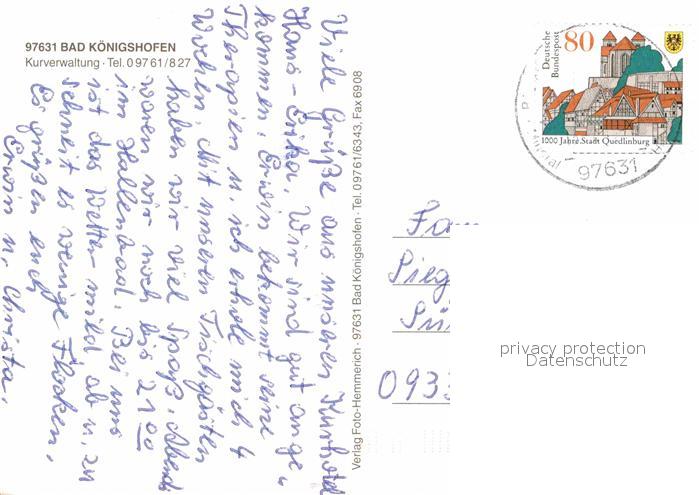 97631 BAD KÖNIGSHOFEN
Kurverwaltung · Tel. 0 97 61 / 8 27
Viele Grüße aus unserem Kurhotel
Hans-Erika, Wir sind gut ange-
kommen, Erwin bekommt seine
Therapien u. ich erhole mich 4
Wochen. Mit unseren Tischgästen
haben wir viel Spaß, Abends
waren wir noch bis 21 00
im Hallenbad. Bei uns
ist das Wetter mild ab u. zu
schneit es wenige Flocken.
Es grüßen euch
Erwin u. Christa.
Verlag Foto-Hemmerich · 97631 Bad Königshofen · Tel. 09761/6343, Fax 6908
Deutsche
Bundespost
80
1000 Jahre Stadt Quedlinburg
97631
Fa
Pieg
Sü
093
privacy protection
Datenschutz